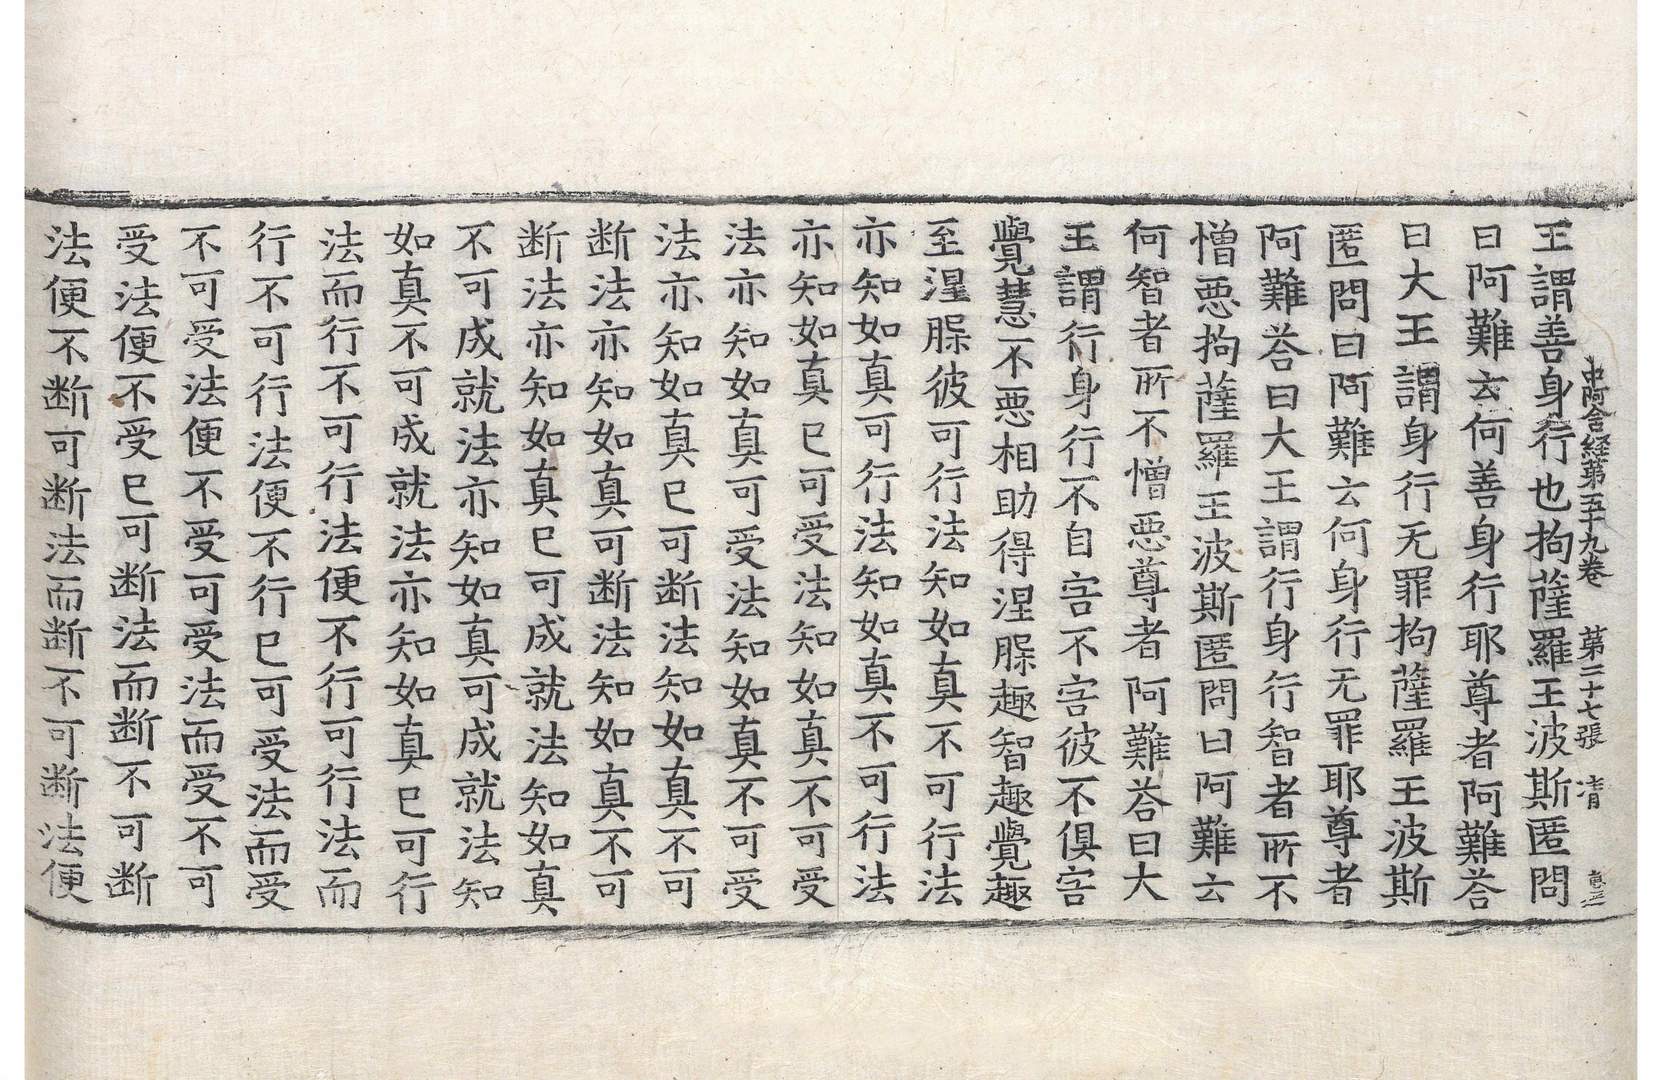 中阿含経第五十九卷 第二十七張 清
王謂善身行也拘薩羅王波斯匿問
曰阿難云何善身行耶尊者阿難荅
曰大王謂身行无罪拘薩羅王波斯
匿問曰阿難云何身行无罪耶尊者
阿難荅曰大王謂行身行智者所不
憎悪拘薩羅王波斯匿問曰阿難云
何智者所不憎悪尊者阿難荅曰大
王謂行身行不自害不害彼不俱害
覺慧不悪相助得涅槃趣智趣覺趣
至涅槃彼可行法知如真不可行法
亦知如真可行法知如真不可行法
亦知如真已可受法知如真不可受
法亦知如真可受法知如真不可受
法亦知如真已可断法知如真不可
断法亦知如真可断法知如真不可
断法亦知如真已可成就法知如真
不可成就法亦知如真可成就法知
如真不可成就法亦知如真已可行
法而行不可行法便不行可行法而
行不可行法便不行已可受法而受
不可受法便不受可受法而受不可
受法便不受已可断法而断不可断
法便不断可断法而断不可断法便